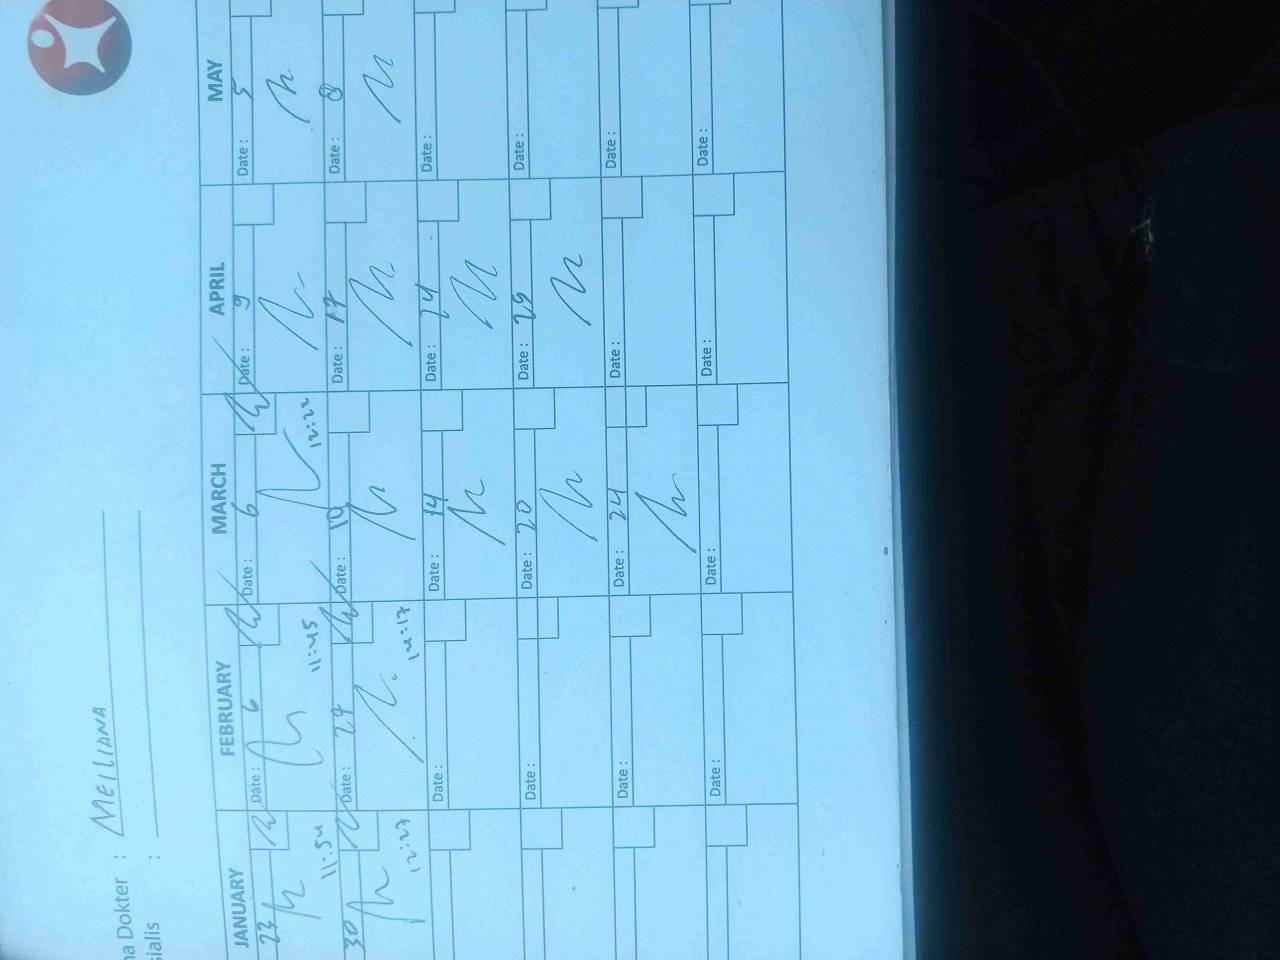 na Dokter : MEILIANA
sialis :
JANUARY FEBRUARY MARCH APRIL MAY
23 Date : 6 Date : 6 Date : 9 Date : 5
11:54 11:45 12:22
30 Date : 27 Date : 10 Date : 17 Date : 8
12:27 14:17
Date : Date : 14 Date : 24 Date :
Date : Date : 20 Date : 29 Date :
Date : Date : 24 Date : Date :
Date : Date : Date : Date :